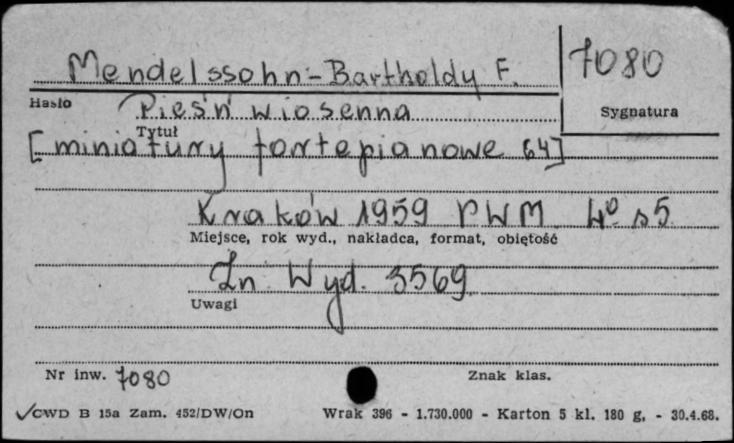 Mendelssohn-Bartholdy F.
7080
Hasło
Pieśń wiosenna
Sygnatura
Tytuł
[miniatury fortepianowe 64]
Kraków 1959 PWM 4º s5
Miejsce, rok wyd., nakładca, format, obiętość
Zn. Wyd. 3569
Uwagi
Nr inw. 7080
Znak klas.
✓CWD B 15a Zam. 452/DW/On
Wrak 396 - 1.730.000 - Karton 5 kl. 180 g, - 30.4.68.